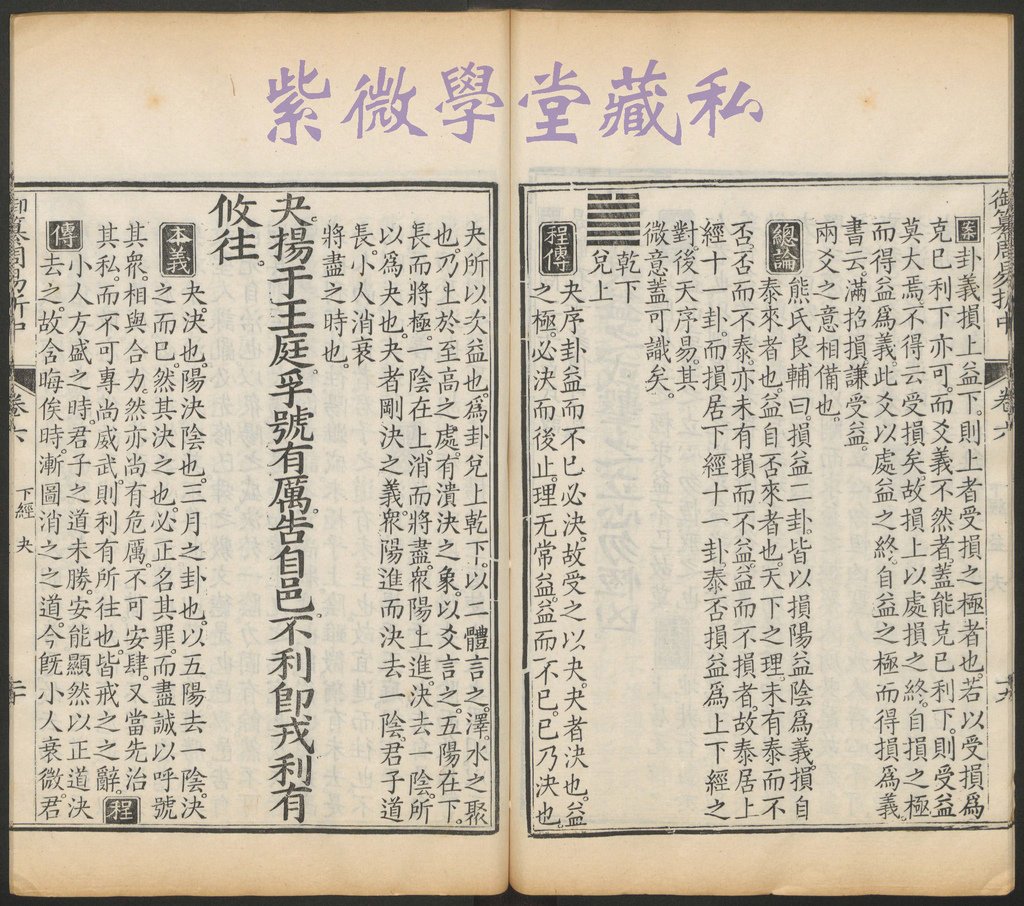 紫微學堂藏私
御纂周易折中
卷六
案 卦義損上益下則上者受損之極者也若以受損爲
克己利下亦可而爻義不然者蓋能克己利下則受益
莫大焉不得云受損矣故損上以處損之終自損之極
而得益爲義此爻以處益之終自益之極而得損爲義
書云滿招損謙受益
兩爻之意相備也
總論 熊氏良輔曰損益二卦皆以損陽益陰爲義損自
泰來者也益自否來者也天下之理未有泰而不
否否而不泰亦未有損而不益益而不損者故泰居上
經十一卦而損居下經十一卦泰否損益爲上下經之
對後天序易其
微意蓋可識矣
乾下
兌上
程傳 夬序卦益而不已必決故受之以夬夬者決也益
之極必決而後止理无常益益而不已已乃決也
夬所以次益也爲卦兌上乾下以二體言之澤水之聚
也乃上於至高之處有潰決之象以爻言之五陽在下
長而將極一陰在上消而將盡衆陽上進決去一陰所
以爲夬也夬者剛決之義衆陽進而決去一陰君子道
長小人消衰
將盡之時也
夬揚于王庭孚號有厲告自邑不利卽戎利有
攸往
本義 夬決也陽決陰也三月之卦也以五陽去一陰決
之而已然其決之也必正名其罪而盡誠以呼號
其衆相與合力然亦尚有危厲不可安肆又當先治
其私而不可專尚威武則利有所往也皆戒之之辭 程
傳 小人方盛之時君子之道未勝安能顯然以正道決
去之故含晦俟時漸圖消之之道今旣小人衰微君
御纂周易折中
卷六
下經 夬
二十